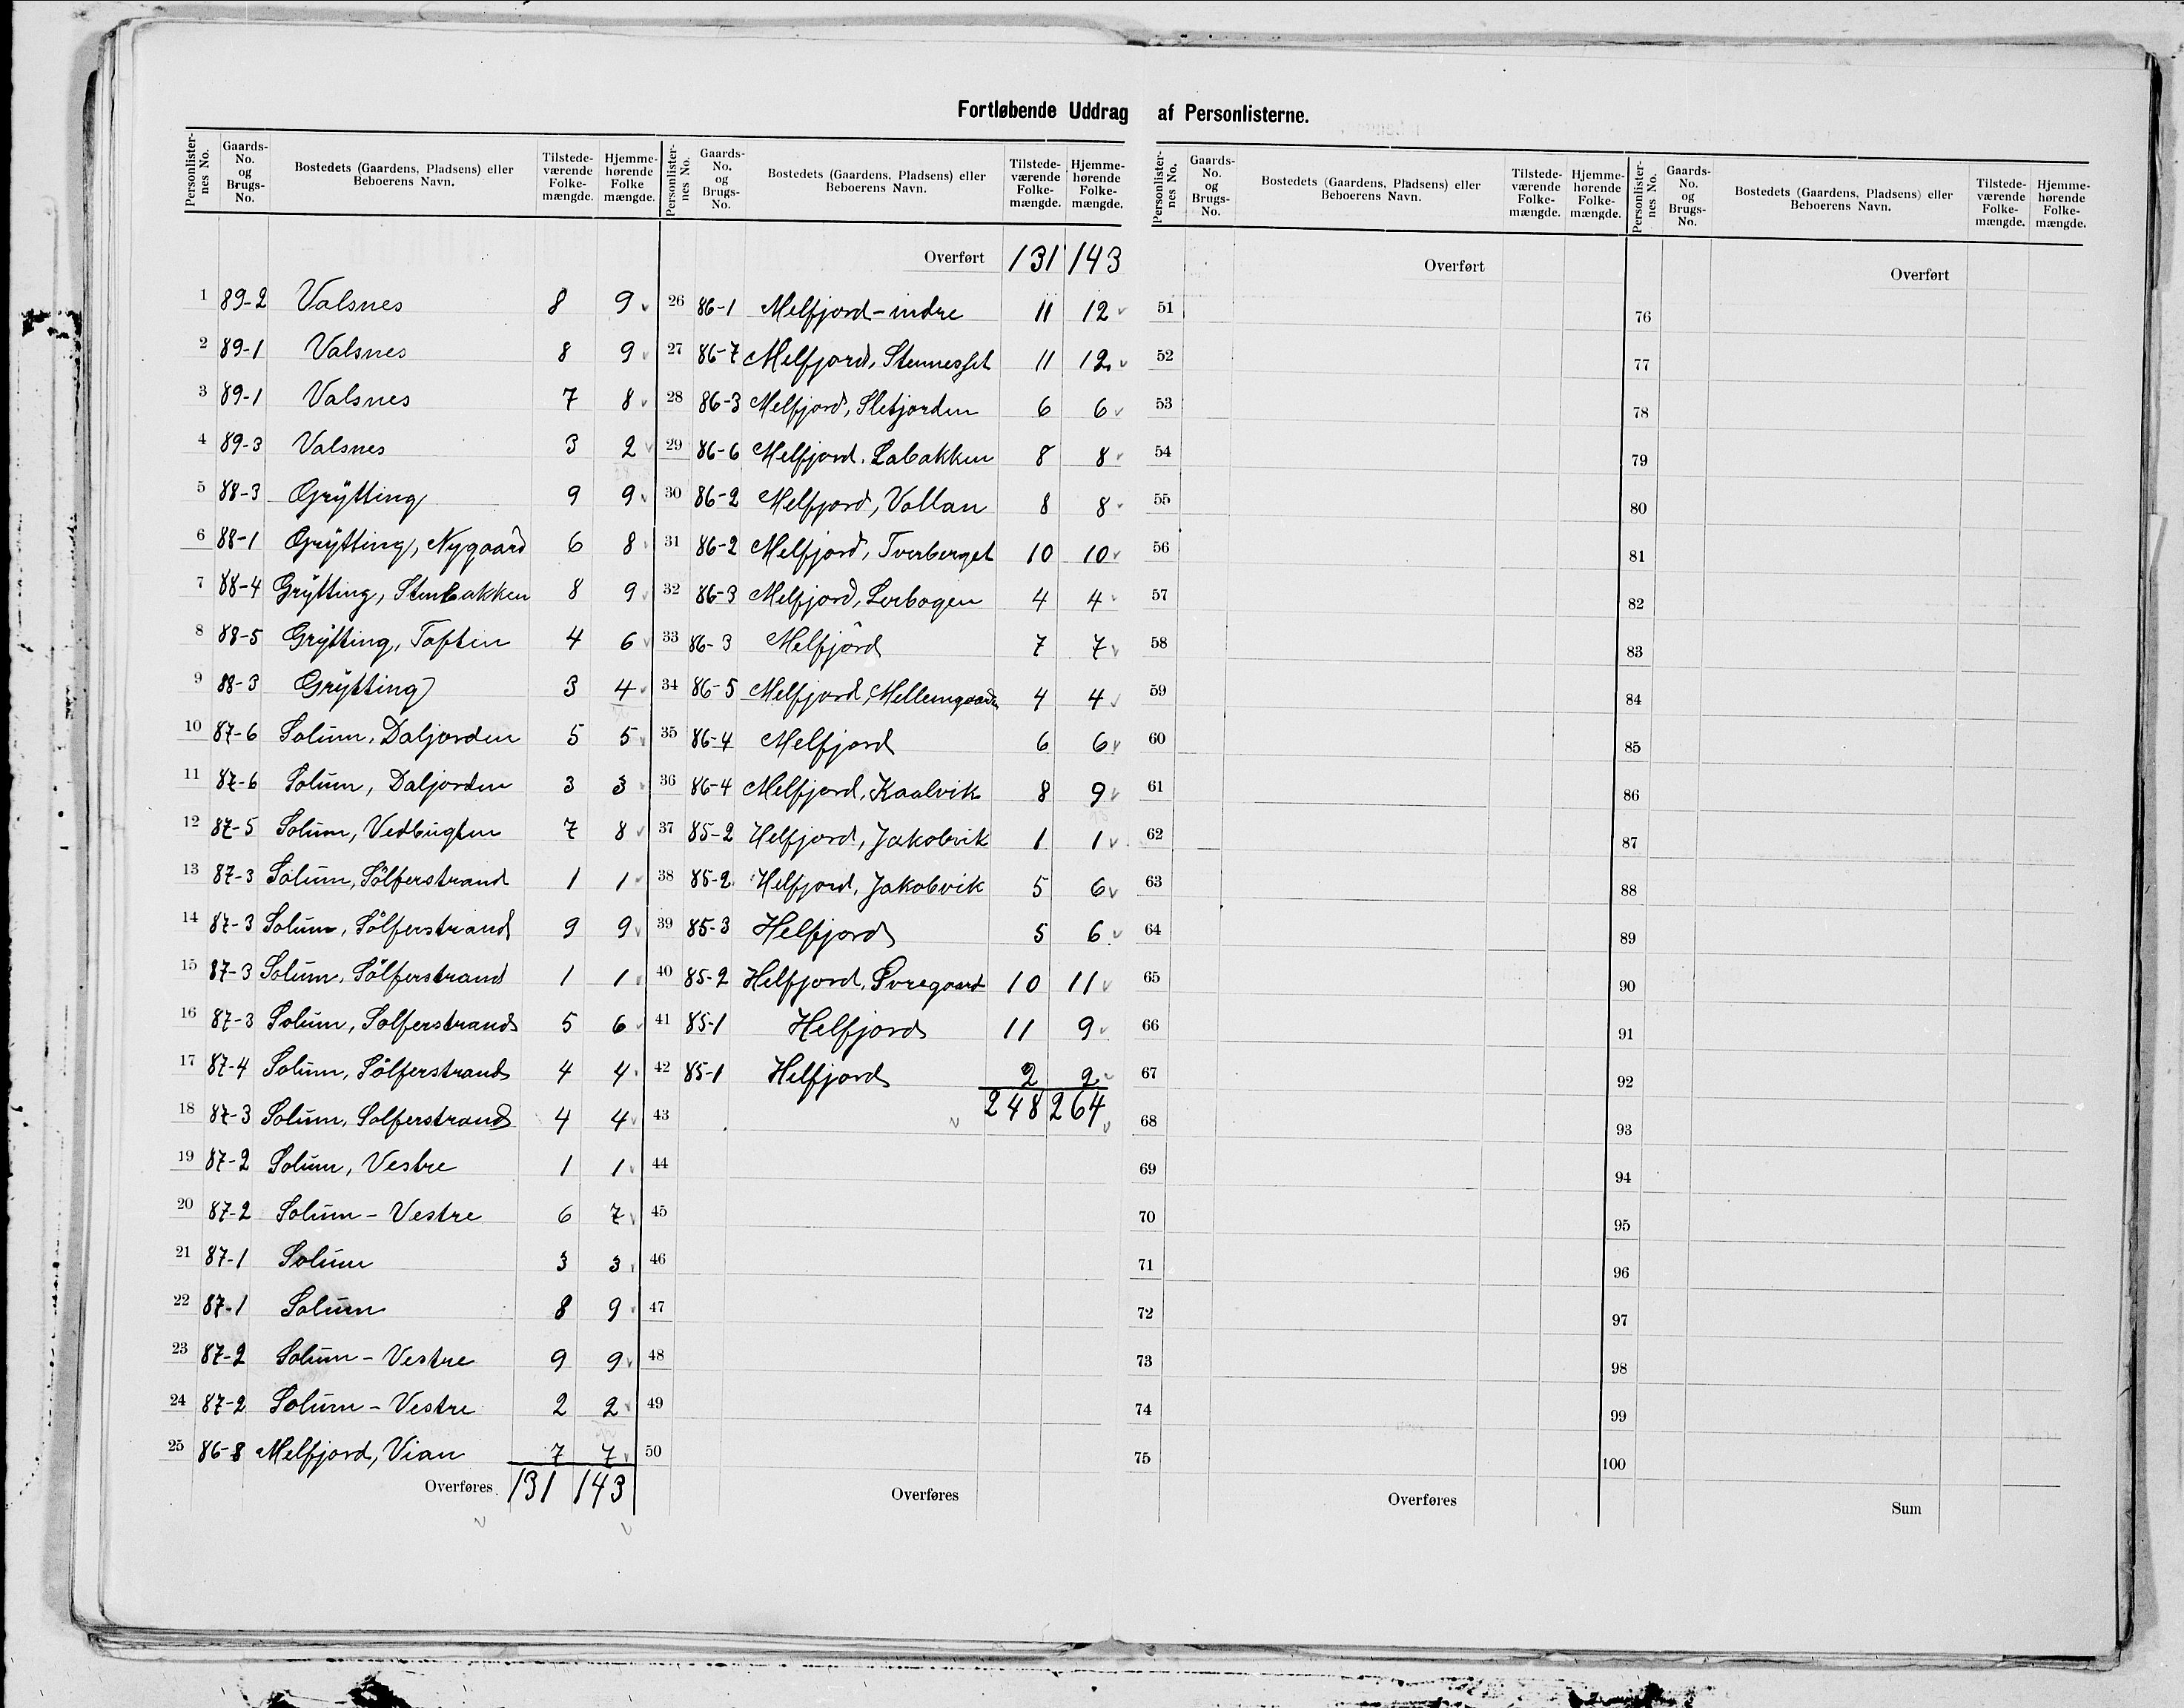 Fortløbende Uddrag af Personlisterne.
Personlister-nes No. Gaards-No. og Brugs-No. Bostedets (Gaardens, Pladsens) eller Beboerens Navn. Tilstede-værende Folke-mængde. Hjemme-hørende Folke mængde.
1 89-2 Valsnes 8 9
2 89-1 Valsnes 8 9
3 89-1 Valsnes 7 8
4 89-3 Valsnes 3 2
5 88-3 Grytting 9 9
6 88-1 Grytting, Nygaard 6 8
7 88-4 Grytting, Stenbakken 8 9
8 88-5 Grytting, Toften 4 6
9 88-3 Grytting 3 4
10 87-6 Solum, Daljorden 5 5
11 87-6 Solum, Daljorden 3 3
12 87-5 Solum, Vedbugten 7 8
13 87-3 Solum, Sölferstrand 1 1
14 87-3 Solum, Sölferstrand 9 9
15 87-3 Solum, Sölferstrand 1 1
16 87-3 Solum, Solferstrand 5 6
17 87-4 Solum, Sölferstrand 4 4
18 87-3 Solum, Solferstrand 4 4
19 87-2 Solum, Vestre 1 1
20 87-2 Solum - Vestre 6 7
21 87-1 Solum 3 3
22 87-1 Solum 8 9
23 87-2 Solum - Vestre 9 9
24 87-2 Solum - Vestre 2 2
25 86-8 Melfjord, Vian 7 7
Overføres 131 143
Personlister-nes No. Gaards-No. og Brugs-No. Bostedets (Gaardens, Pladsens) eller Beboerens Navn. Tilstede-værende Folke-mængde. Hjemme-hørende Folke-mængde.
Overført 131 143
26 86-1 Melfjord-indre 11 12
27 86-7 Melfjord, 11 12
28 86-3 Melfjord, Sletjorden 6 6
29 86-6 Melfjord. Labakken 8 8
30 86-2 Melfjord, Vollan 8 8
31 86-2 Melfjord, Tverberget 10 10
32 86-3 Melfjord, Lerbogen 4 4
33 86-3 Melfjord 7 7
34 86-5 Melfjord, Mellemgaarden 4 4
35 86-4 Melfjord 6 6
36 86-4 Melfjord, Kaalvik 8 9
37 85-2 Helfjord, Jakobvik 1 1
38 85-2 Helfjord, Jakobvik 5 6
39 85-3 Helfjord 5 6
40 85-2 Helfjord, Øvregaard 10 11
41 85-1 Helfjord 11 9
42 85-1 Helfjord 2 2
43 248 264
44
45
46
47
48
49
50
Overføres
Personlister-nes No. Gaards-No. og Brugs-No. Bostedets (Gaardens, Pladsens) eller Beboerens Navn. Tilstede-værende Folke-mængde. Hjemme-hørende Folke-mængde.
Overført
51
52
53
54
55
56
57
58
59
60
61
62
63
64
65
66
67
68
69
70
71
72
73
74
75
Overføres
Personlister-nes No. Gaards-No. og Brugs-No. Bostedets (Gaardens, Pladsens) eller Beboerens Navn. Tilstede-værende Folke-mængde. Hjemme-hørende Folke-mængde.
Overført
76
77
78
79
80
81
82
83
84
85
86
87
88
89
90
91
92
93
94
95
96
97
98
99
100
Sum